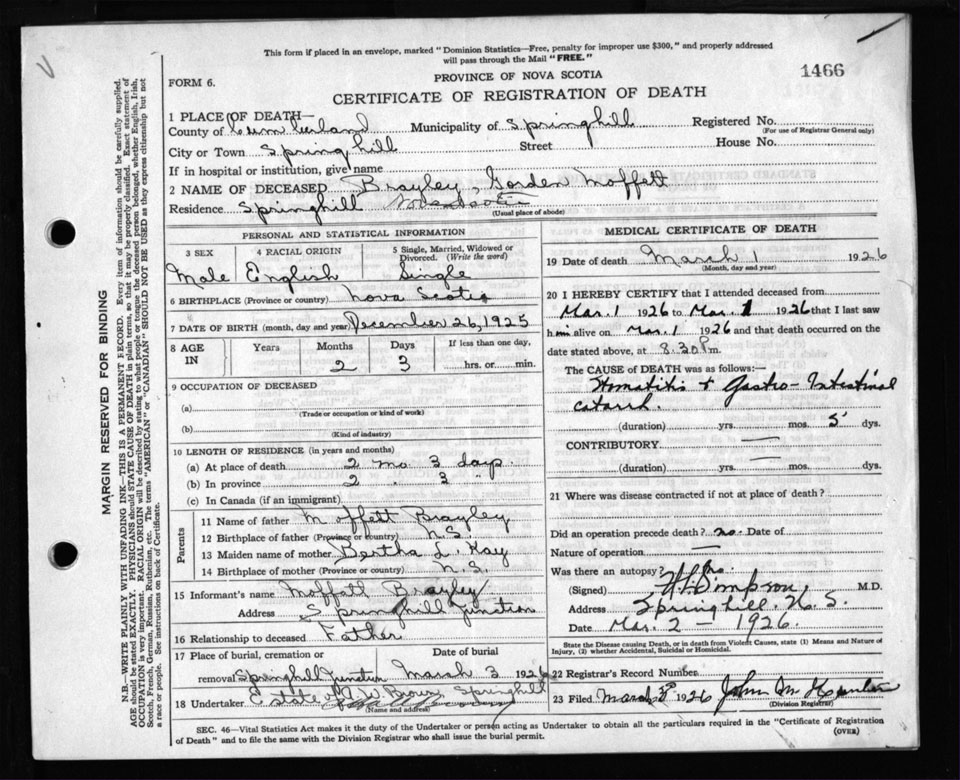 This form if placed in an envelope, marked "Dominion Statistics—Free, penalty for improper use $300," and properly addressed
will pass through the Mail "FREE."
PROVINCE OF NOVA SCOTIA
1466
FORM 6.
CERTIFICATE OF REGISTRATION OF DEATH
1 PLACE OF DEATH—
County of Cumberland Municipality of Springhill Registered No.
(For use of Registrar General only)
City or Town Springhill Street House No.
If in hospital or institution, give name
2 NAME OF DECEASED Brayley, Gorden Moffett
Residence Springhill
(Usual place of abode)
PERSONAL AND STATISTICAL INFORMATION
3 SEX 4 RACIAL ORIGIN 5 Single, Married, Widowed or Divorced. (Write the word)
Male English Single
6 BIRTHPLACE (Province or country) Nova Scotia
7 DATE OF BIRTH (month, day and year) December 26, 1925
8 AGE IN Years Months Days If less than one day,
2 3 hrs. or min.
9 OCCUPATION OF DECEASED
(a)
(Trade or occupation or kind of work)
(b)
(Kind of industry)
10 LENGTH OF RESIDENCE (in years and months)
(a) At place of death 2 mo 3 days.
(b) In province 2 " 3 "
(c) In Canada (if an immigrant)
Parents
11 Name of father Moffett Brayley
12 Birthplace of father (Province or country) N.S.
13 Maiden name of mother Bertha L. Kay
14 Birthplace of mother (Province or country) N.S.
15 Informant's name Moffatt Brayley
Address Springhill Junction
16 Relationship to deceased Father
17 Place of burial, cremation or Date of burial
removal Springhill Junction March 3 1926
18 Undertaker Estate of A W Brown Springhill
(Name and address)
MEDICAL CERTIFICATE OF DEATH
19 Date of death March 1 1926
(Month, day and year)
20 I HEREBY CERTIFY that I attended deceased from
Mar. 1 1926 to Mar. 1 1926 that I last saw
him alive on Mar. 1 1926 and that death occurred on
date stated above, at 8.30 P.m.
The CAUSE OF DEATH was as follows:
Stomatitis + Gastro-Intestinal
catarrh.
(duration) yrs. mos. 5 dys.
CONTRIBUTORY —
(duration) yrs. — mos. dys.
21 Where was disease contracted if not at place of death?
Did an operation precede death? no. Date of
Nature of operation —
Was there an autopsy? No
(Signed) Simpson M.D.
Address Springhill. N. S.
Date Mar. 2 — 1926.
State the Disease causing Death, or in death from Violent Causes, state (1) Means and Nature of
Injury, (2) whether Accidental, Suicidal or Homicidal.
22 Registrar's Record Number
23 Filed March 3rd 1926 John M
(Division Registrar)
SEC. 46—Vital Statistics Act makes it the duty of the Undertaker or person acting as Undertaker to obtain all the particulars required in the "Certificate of Registration
of Death" and to file the same with the Division Registrar who shall issue the burial permit.
(OVER)
MARGIN RESERVED FOR BINDING
N.B.—WRITE PLAINLY WITH UNFADING INK—THIS IS A PERMANENT RECORD. Every item of information should be carefully supplied.
AGE should be stated EXACTLY. PHYSICIANS should STATE CAUSE OF DEATH in plain terms, so that it may be properly classified. Exact statement of
OCCUPATION is very important. RACIAL ORIGIN will be described by stating to what people or tongue the deceased person belonged, whether English, Irish,
Scotch, French, German, Russian, Ruthenian, etc. The terms "AMERICAN" or "CANADIAN" SHOULD NOT BE USED as they express citizenship but not
a race or people. See instructions on back of Certificate.